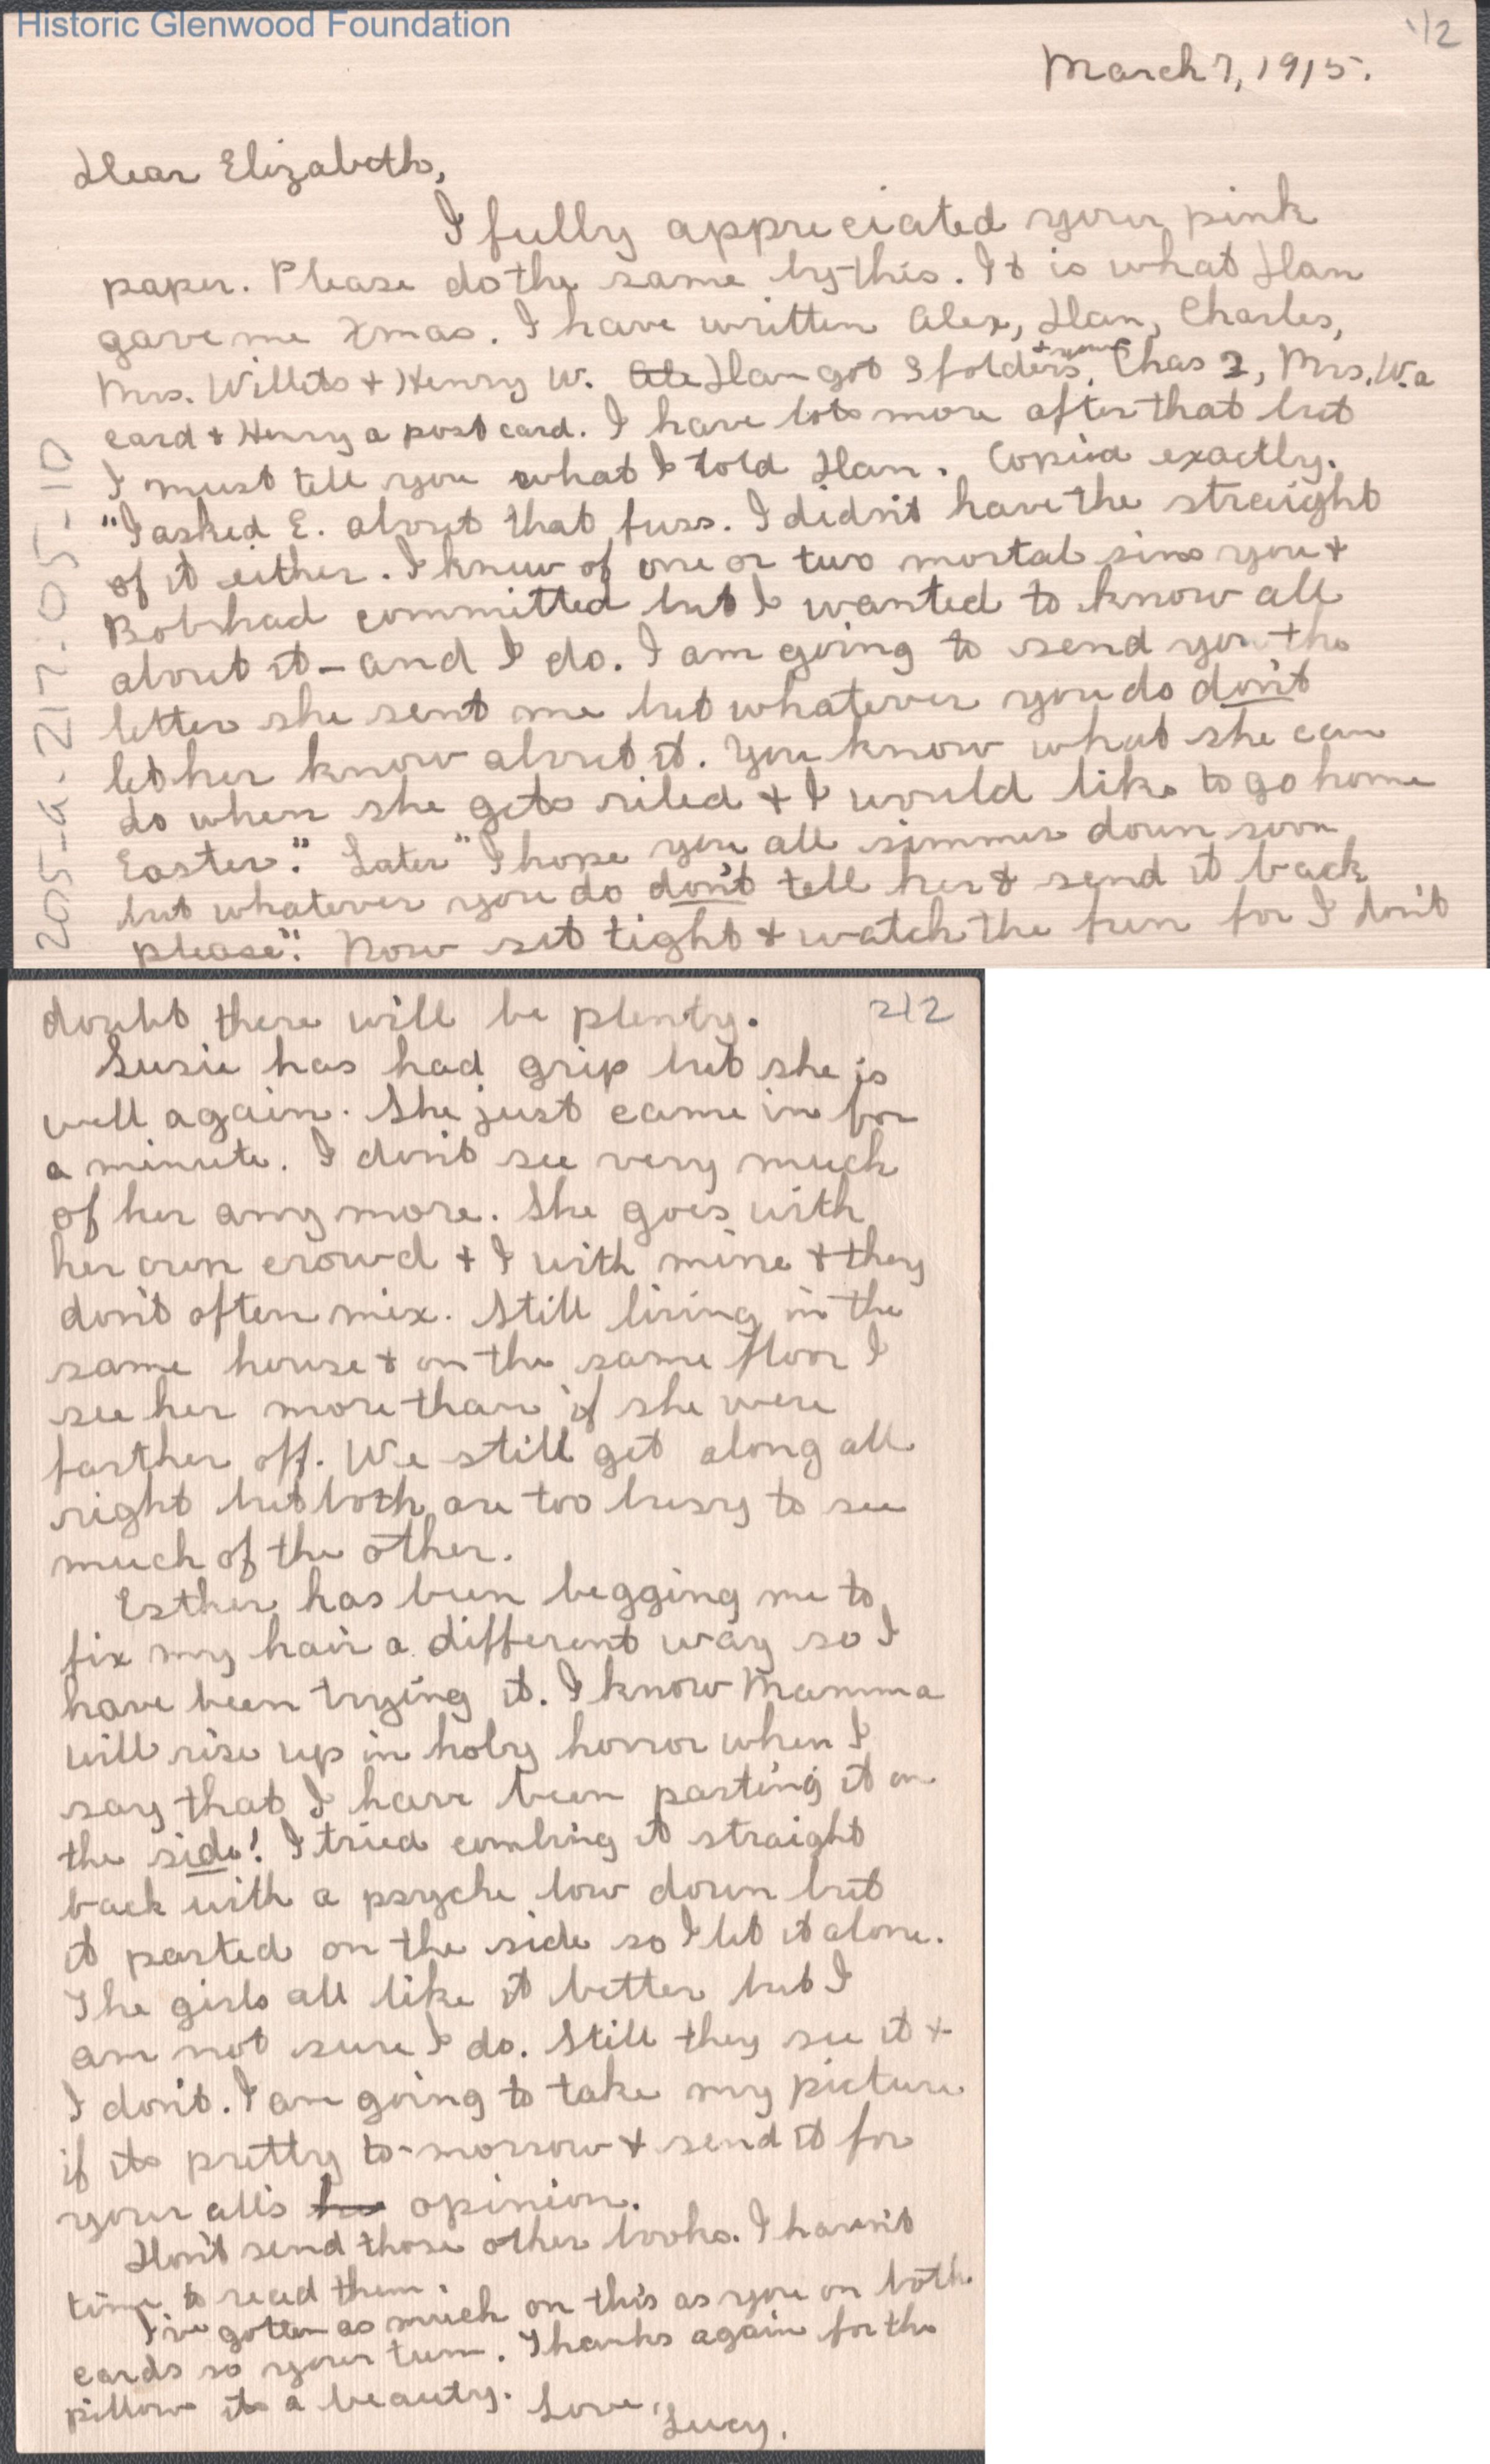 Historic Glenwood Foundation
1/2
March 7, 1915.
Dear Elizabeth,
I fully appreciated your pink
paper. Please do the same by this. It is what Dan
gave me Xmas. I have written Alex, Dan, Charles,
Mrs. Willits + Henry W. Dan got 3 folders, Chas 2, Mrs. W. a
card + Henry a post card. I have lots more after that but
I must tell you what I told Dan. Copied exactly.
"I asked E. about that fuss. I didn't have the straight
of it either. I knew of one or two mortal sins you +
Bob had committed but I wanted to know all
about it - and I do. I am going to send you the
letter she sent me but whatever you do don't
let her know about it. You know what she can
do when she gets riled + I would like to go home
Easter." Later "I hope you all simmer down soon
but whatever you do don't tell her + send it back
please." Now set tight + watch the fun for I don't
205-a.217.05-10
doubt there will be plenty.
2/2
Susie has had grip but she is
well again. She just came in for
a minute. I don't see very much
of her any more. She goes with
her own crowd + I with mine + they
don't often mix. Still living in the
same house + on the same floor I
see her more than if she were
farther off. We still get along all
right but both are too busy to see
much of the other.
Esther has been begging me to
fix my hair a different way so I
have been trying it. I know Mamma
will rise up in holy horror when I
say that I have been parting it on
the side! I tried combing it straight
back with a psyche low down but
it parted on the side so I let it alone.
The girls all like it better but I
am not sure I do. Still they see it +
I don't. I am going to take my picture
if its pretty to-morrow + send it for
your all's opinion.
Don't send those other books. I haven't
time to read them.
I've gotten as much on this as you on both
cards so your turn. Thanks again for the
pillow its a beauty. Love,
Lucy.